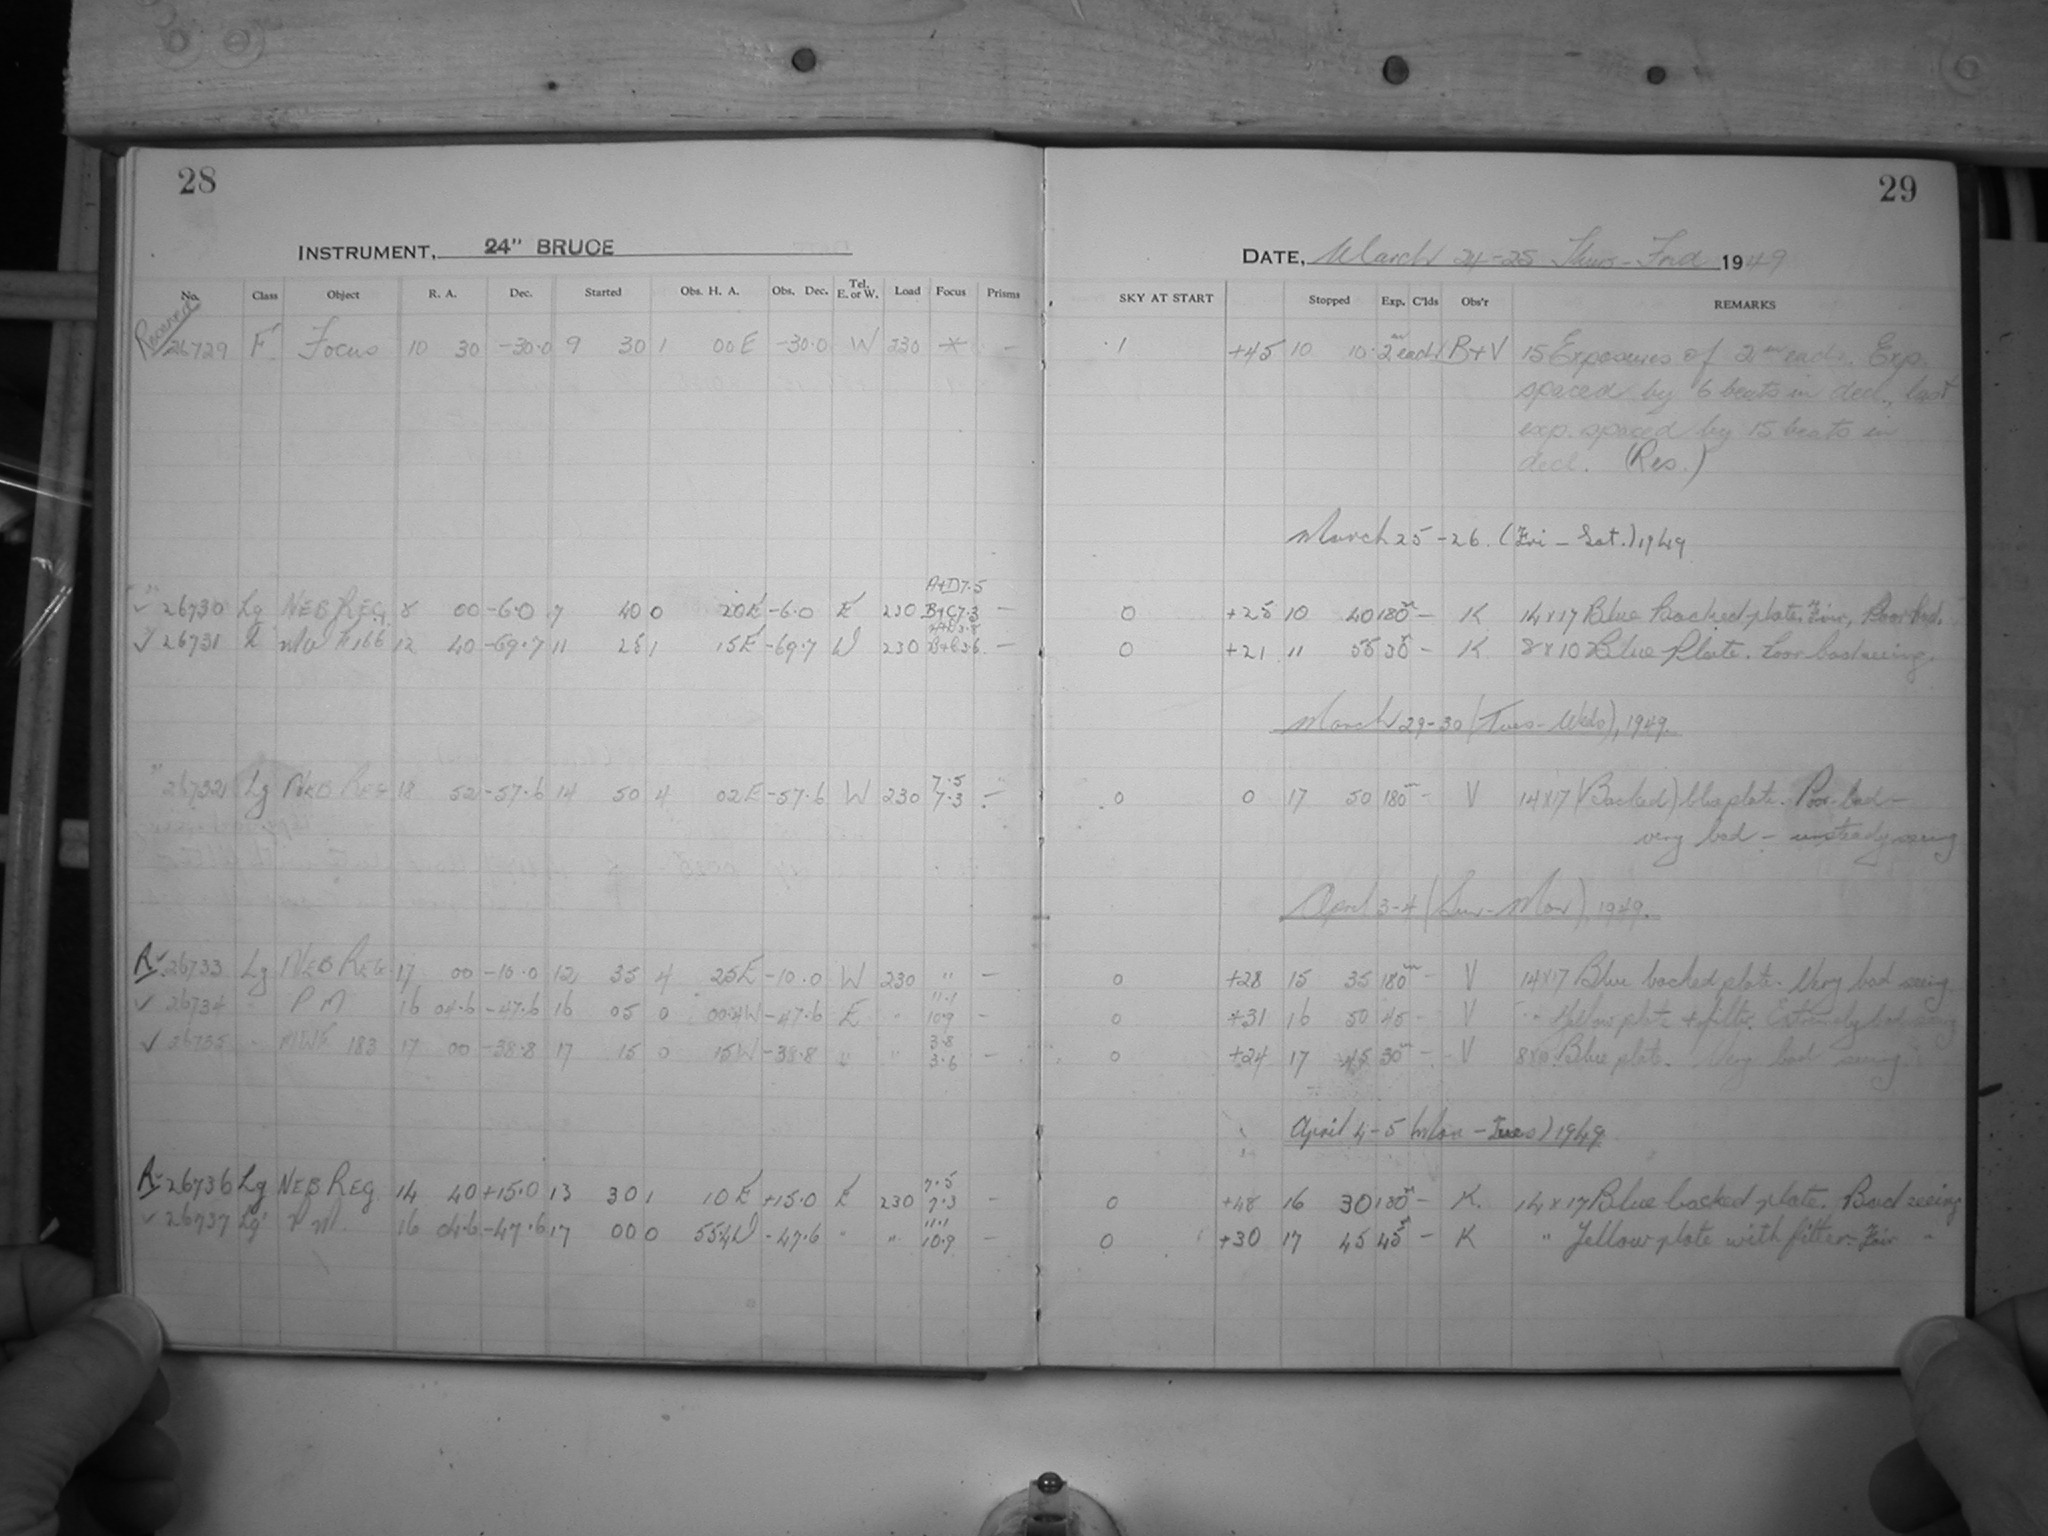 28
29
INSTRUMENT, 24" BRUCE
DATE, March 24-25 Thurs-Frid 1949
No. Class Object R. A. Dec. Started Obs. H. A. Obs. Dec. Tel. E. or W. Load Focus Prisms SKY AT START Stopped Exp. C'lds Obs'r REMARKS
Reserved
26729 F Focus 10 30 -30.0 9 30 1 00 E -30.0 W 230 * - 1 +45 10 10 2m each B+V 15 Exposures of 2m each. Exp.
spaced by 6 beats in decl., last
exp. spaced by 15 beats in
decl. (Res.)
March 25-26. (Fri - Sat.) 1949
A+D 7.5
✓ 26730 Lg NEB REG. 8 00 -6.0 7 40 0 20 E -6.0 E 230 B+C 7.3 - 0 +25 10 40 180m - K 14x17 Blue Backed plate. Fair, Poor
A+D 3.8
✓ 26731 12 40 -69.7 11 25 1 15 E -69.7 W 230 B+C 3.6 - 0 +21 11 55 30 - K 8x10 Blue Plate. bad seeing.
March 29-30 (Tues-Weds), 1949.
7.5
" 26732 Lg NEB REG 18 52 -57.6 14 50 4 02 E -57.6 W 230 7.3 - 0 0 17 50 180m - V 14x17 (Backed) blue plate. Poor-bad-
very bad - unsteady seeing
April 3-4 (Sun-Mon), 1949.
R ✓ 26733 Lg NEB REG 17 00 -10.0 12 35 4 25 E -10.0 W 230 " - 0 +28 15 35 180m - V 14x17 Blue backed plate. Very bad seeing
11.1
✓ 26734 " P M 16 04.6 -47.6 16 05 0 00.4 W -47.6 E " 10.9 - 0 +31 16 50 45 - V " Yellow plate + filter. Extremely bad seeing
3.8
✓ 26735 " MWF 183 17 00 -38.8 17 15 0 15 W -38.8 " " 3.6 - 0 +24 17 45 30m - V 8x10 Blue plate. Very bad seeing.
April 4-5 (Mon - Tues) 1949
7.5
R ✓ 26736 Lg NEB REG. 14 40 +15.0 13 30 1 10 E +15.0 E 230 7.3 - 0 +48 16 30 180m - K. 14x17 Blue backed plate. Bad seeing
11.1
✓ 26737 Lg P M. 16 04.6 -47.6 17 00 0 55.4 W -47.6 " " 10.9 - 0 +30 17 45 45 - K " Yellow plate with filter. Fair "